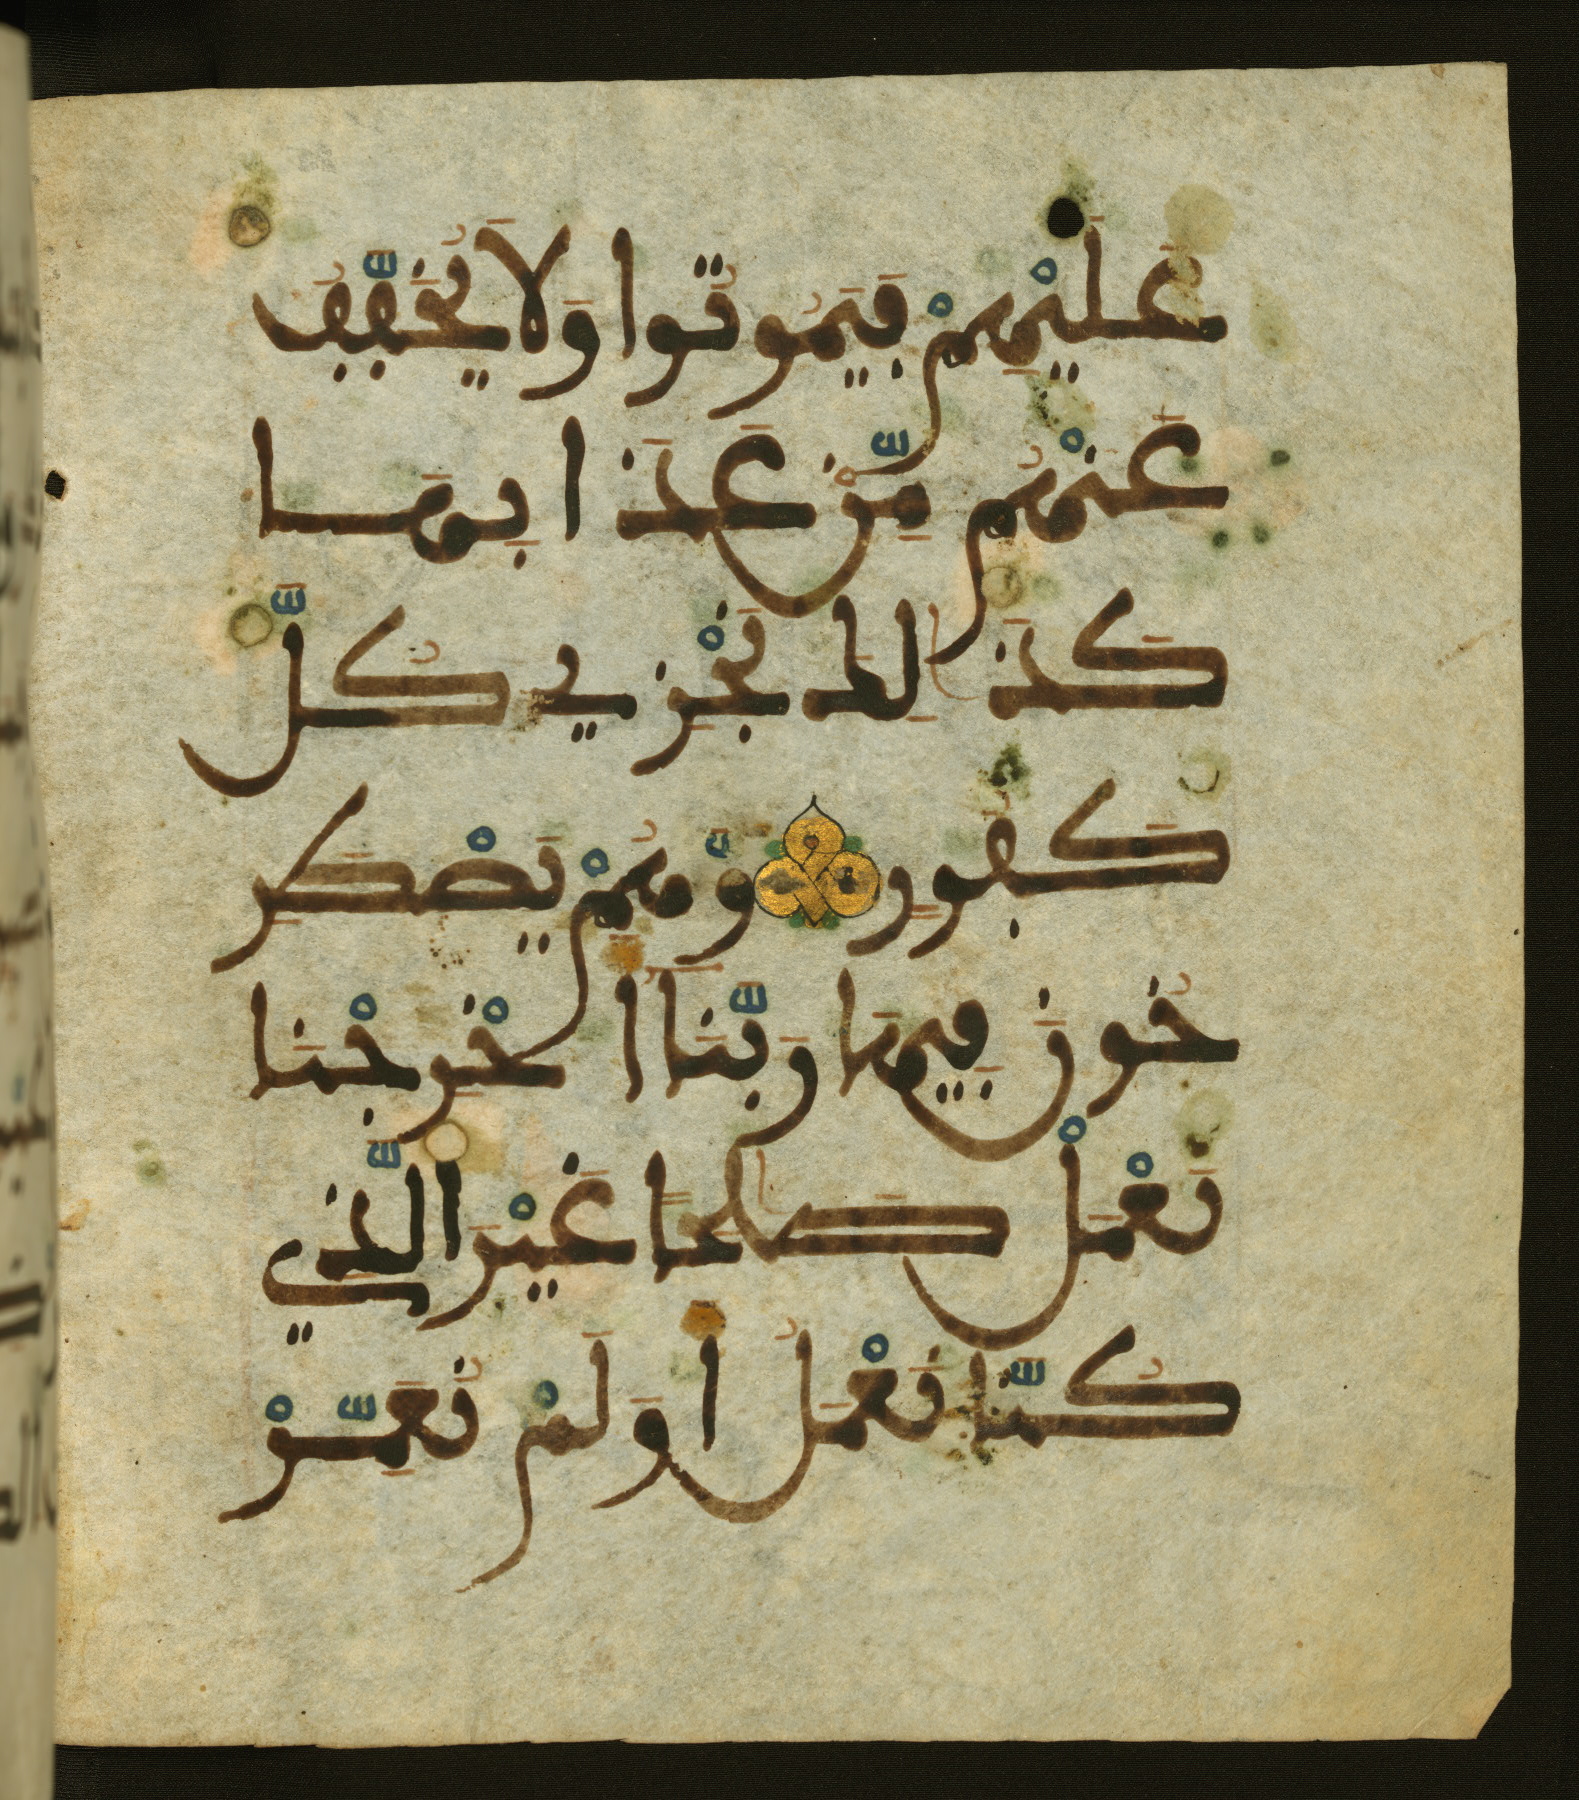 عَلَيْهِمْ فَيَمُوتُوا وَلَا يُخَفَّفُ
عَنْهُم مِّنْ عَذَابِهَا
كَذَٰلِكَ نَجْزِي كُلَّ
كَفُورٍ وَهُمْ يَصْطَرِ
خُونَ فِيهَا رَبَّنَا أَخْرِجْنَا
نَعْمَلْ صَٰلِحًا غَيْرَ الَّذِي
كُنَّا نَعْمَلُ أَوَلَمْ نُعَمِّرْ